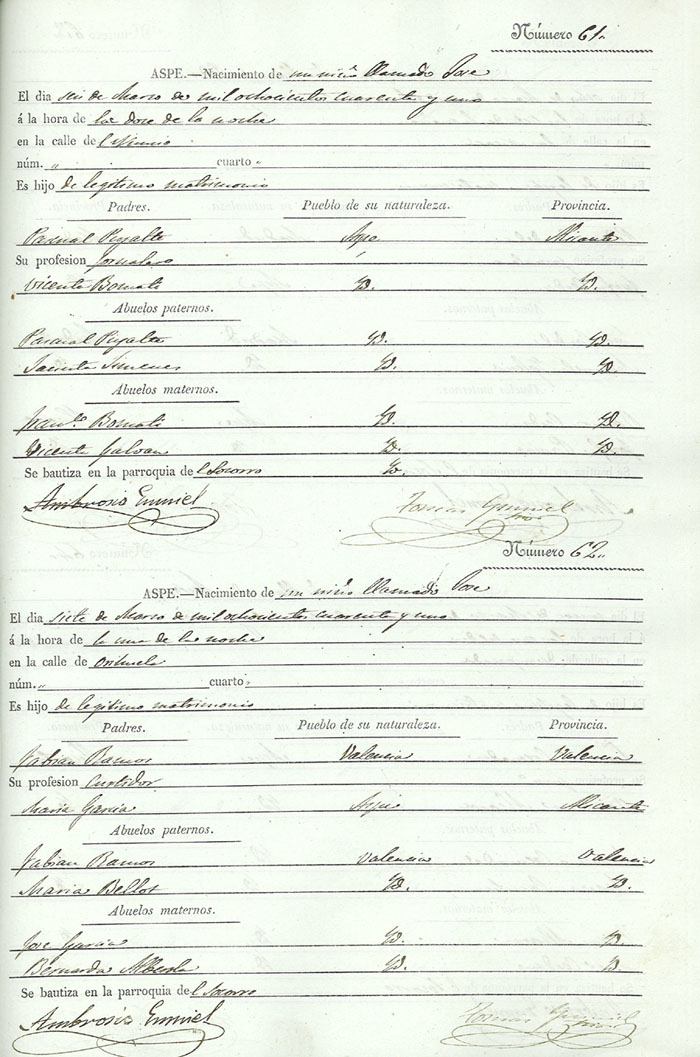 Número 61.
ASPE.—Nacimiento de un niño llamado Jose
El dia seis de Marzo de mil ochocientos cuarenta y uno
á la hora de las doce de la noche
en la calle de
núm. " cuarto "
Es hijo de legitimo matrimonio
Padres. Pueblo de su naturaleza. Provincia.
Pascual Peralte Aspe Alicante
Su profesion Jornalero
Vicenta Bomati Yd. Yd.
Abuelos paternos.
Pascual Peralte Yd. Yd.
Jacinta Simenes Yd. Yd.
Abuelos maternos.
Fran.co Bomati Yd. Yd.
Vicenta Galvan Yd. Yd.
Se bautiza en la parroquia del Socorro Yd.
Ambrosio
Tomas
Número 62.
ASPE.—Nacimiento de un niño llamado Jose
El dia siete de Marzo de mil ochocientos cuarenta y uno
á la hora de la una de la noche
en la calle de Orihuela
núm. " cuarto
Es hijo de legitimo matrimonio
Padres. Pueblo de su naturaleza. Provincia.
Fabian Ramos Valencia Valencia
Su profesion Curtidor
Maria Garcia Aspe Alicante
Abuelos paternos.
Fabian Ramos Valencia Valencia
Maria Bellot Yd. Yd.
Abuelos maternos.
Jose Garcia Yd. Yd.
Bernarda Yd. Yd.
Se bautiza en la parroquia del Socorro
Ambrosio
Tomas